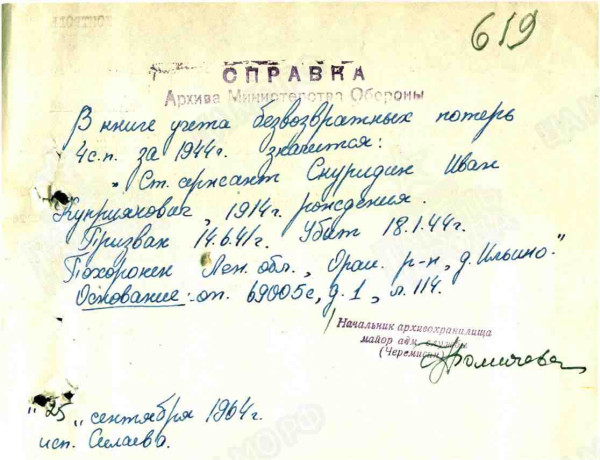 619
СПРАВКА
Архива Министерства Обороны
В книге учета безвозвратных потерь
4 с.п. за 1944г. значится:
„Ст. сержант Снуридин Иван
Куприянович, 1914г. рождения.
Призван 14.6.41г. Убит 18.1.44г.
Похоронен Лен. обл., Ораи. р-н, д. Ильино."
Основание: оп. 69005с, д. 1, л. 114.
Начальник архивохранилища
майор адм. службы
(Черемисин)
"25" сентября 1964г.
исп. Силаева.